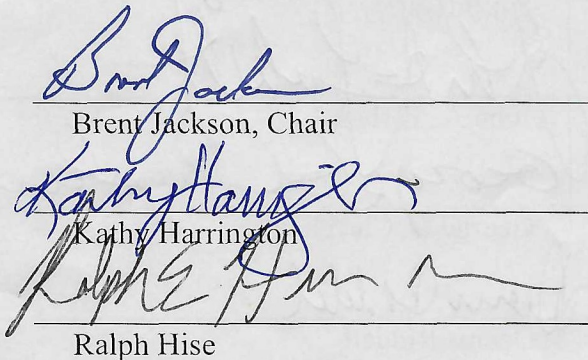 Brent Jackson
Brent Jackson, Chair
Kathy Harrington
Kathy Harrington
Ralph E Hise
Ralph Hise